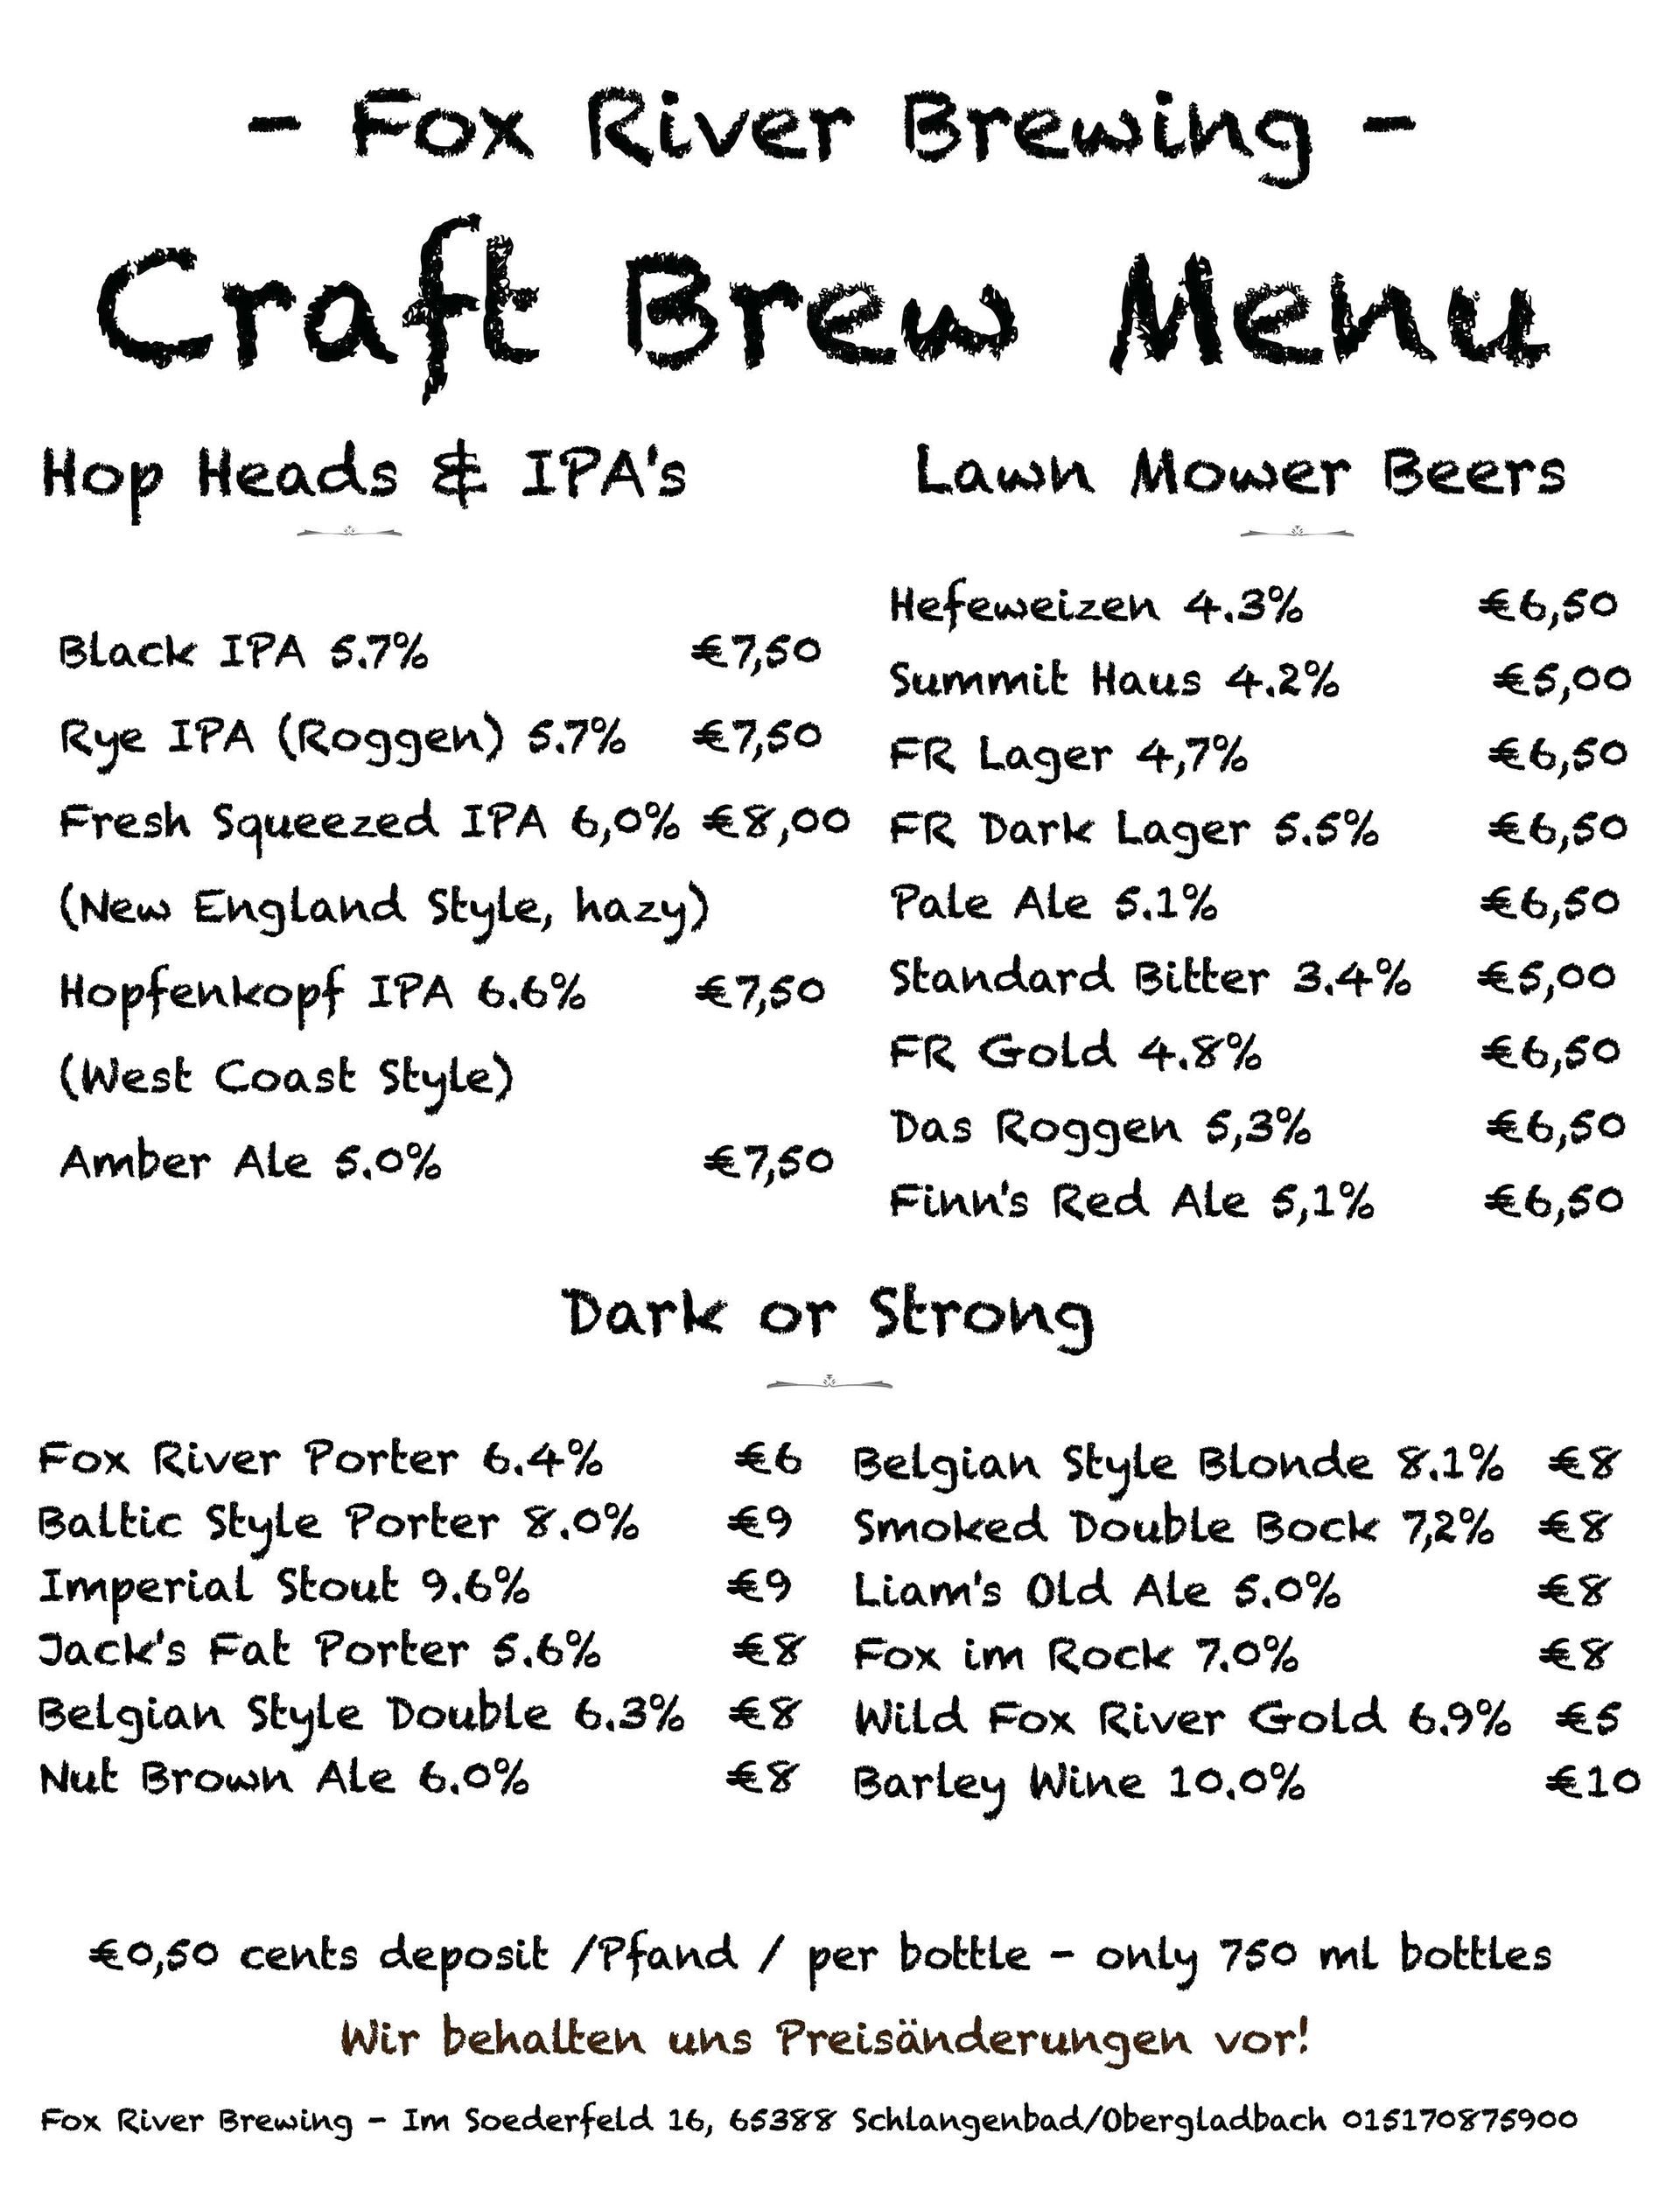 - Fox River Brewing -
Craft Brew Menu
Hop Heads & IPA's
Black IPA 5.7% €7,50
Rye IPA (Roggen) 5.7% €7,50
Fresh Squeezed IPA 6,0% €8,00
(New England Style, hazy)
Hopfenkopf IPA 6.6% €7,50
(West Coast Style)
Amber Ale 5.0% €7,50
Lawn Mower Beers
Hefeweizen 4.3% €6,50
Summit Haus 4.2% €5,00
FR Lager 4,7% €6,50
FR Dark Lager 5.5% €6,50
Pale Ale 5.1% €6,50
Standard Bitter 3.4% €5,00
FR Gold 4.8% €6,50
Das Roggen 5,3% €6,50
Finn's Red Ale 5,1% €6,50
Dark or Strong
Fox River Porter 6.4% €6
Baltic Style Porter 8.0% €9
Imperial Stout 9.6% €9
Jack's Fat Porter 5.6% €8
Belgian Style Double 6.3% €8
Nut Brown Ale 6.0% €8
Belgian Style Blonde 8.1% €8
Smoked Double Bock 7,2% €8
Liam's Old Ale 5.0% €8
Fox im Rock 7.0% €8
Wild Fox River Gold 6.9% €5
Barley Wine 10.0% €10
€0,50 cents deposit /Pfand / per bottle - only 750 ml bottles
Wir behalten uns Preisänderungen vor!
Fox River Brewing - Im Soederfeld 16, 65388 Schlangenbad/Obergladbach 015170875900